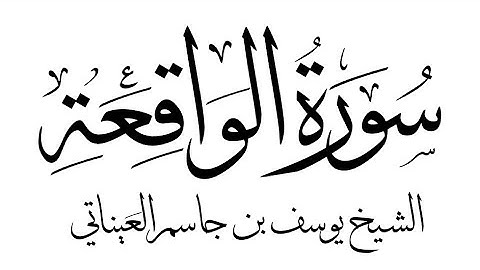 سُورَةُ الوَاقِعَةِ
الشيخ يوسف بن جاسم العيناتي